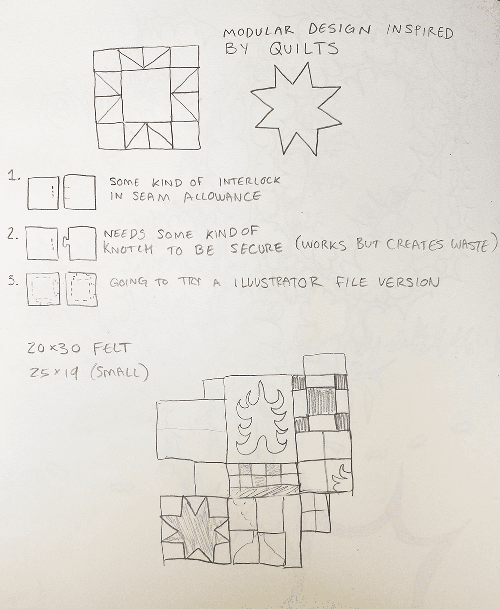 MODULAR DESIGN INSPIRED
BY QUILTS
1.
SOME KIND OF INTERLOCK
IN SEAM ALLOWANCE
2.
NEEDS SOME KIND OF
KNOTCH TO BE SECURE (WORKS BUT CREATES WASTE)
3.
GOING TO TRY A ILLUSTRATOR FILE VERSION
20x30 FELT
25x19 (SMALL)